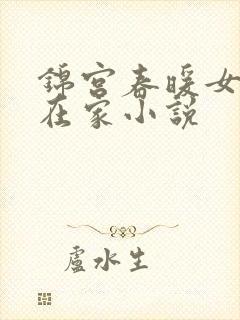 錦宮春暖女
在家小說
盧水生